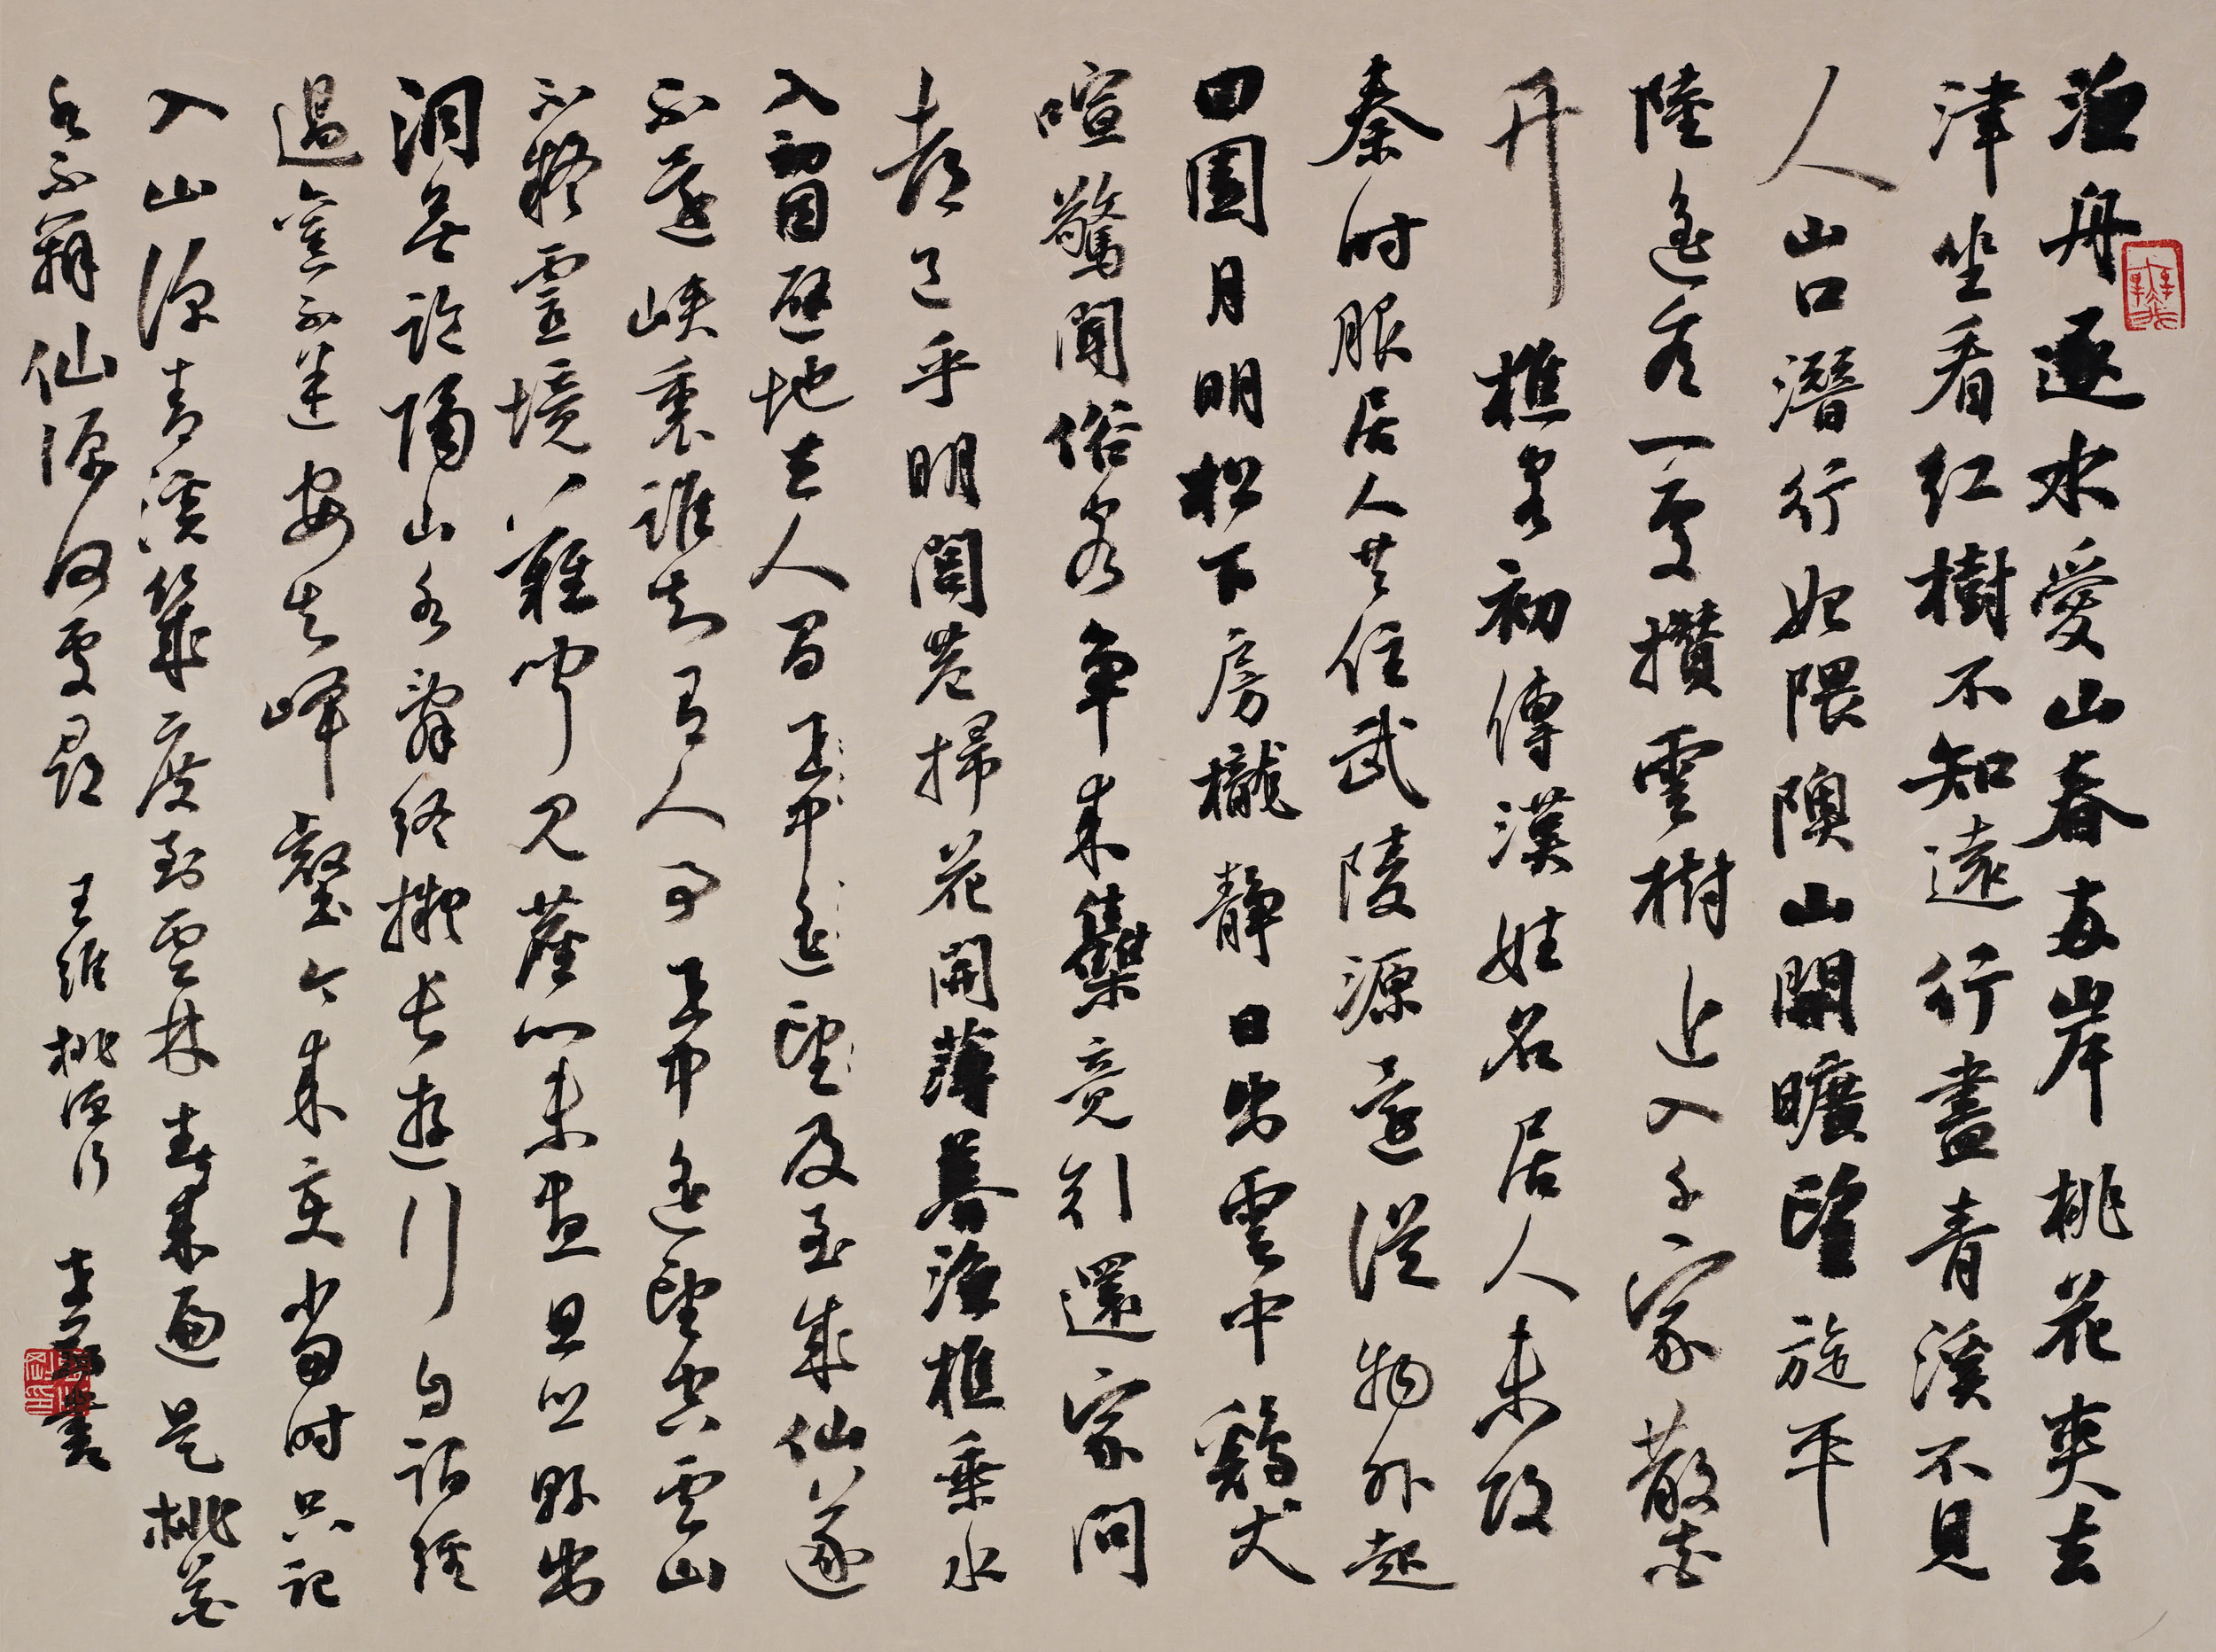 漁舟逐水愛山春兩岸桃花夾去
津坐看紅樹不知遠行盡青溪不見
人山口潛行始隈隩山開曠望旋平
陸遙看一處攢雲樹近入千家散花
竹樵客初傳漢姓名居人未改
秦时服居人共住武陵源還從物外起
田園月明松下房櫳靜日出雲中鷄犬
喧驚聞俗客爭來集競引還家問
都邑平明閭巷掃花開薄暮漁樵乘水
入初因避地去人間世中遙望及至成仙遂
不還峽裏誰知有人事世中遙望空雲山
不疑靈境難聞見塵心未盡思鄉縣出
洞無論隔山水辭終擬長遊衍自謂經
過舊不迷安知峰壑今來變當时只記
入山深青溪幾度到雲林春來遍是桃花
水不辨仙源何處尋 王維桃源行 書